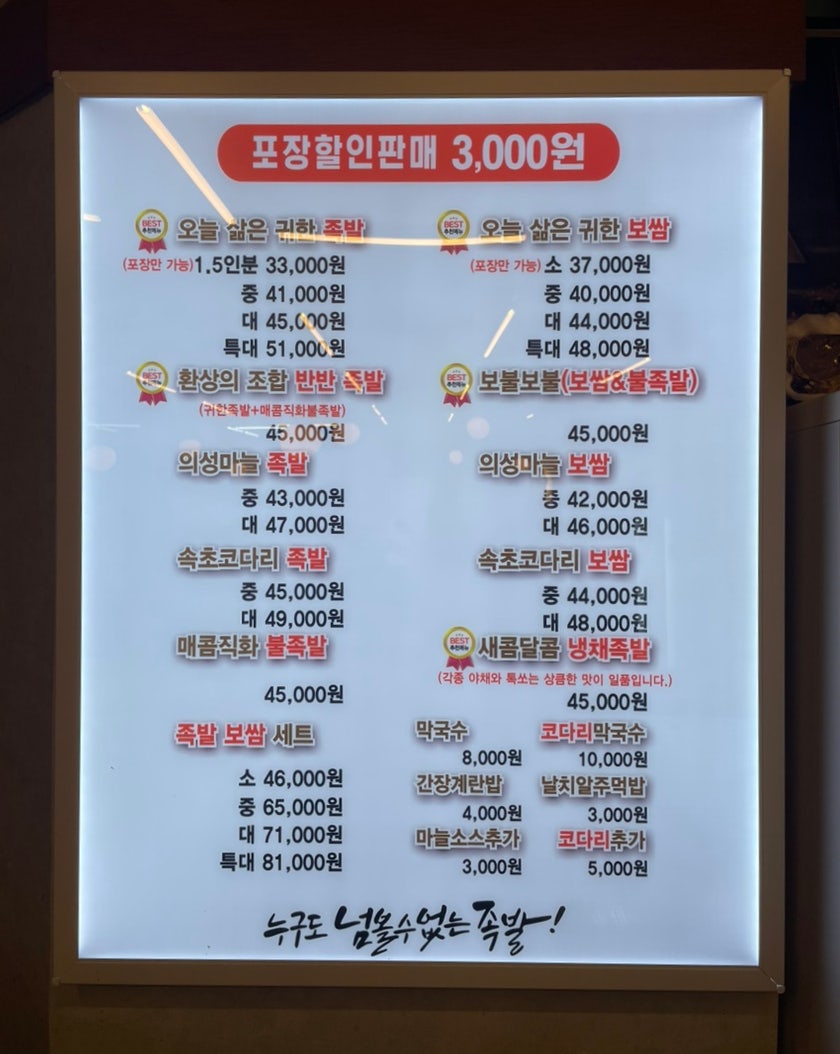 포장할인판매 3,000원
BEST 추천메뉴 오늘 삶은 귀한 족발
(포장만 가능) 1.5인분 33,000원
중 41,000원
대 45,000원
특대 51,000원
BEST 추천메뉴 환상의 조합 반반 족발
(귀한족발+매콤직화불족발)
45,000원
의성마늘 족발
중 43,000원
대 47,000원
속초코다리 족발
중 45,000원
대 49,000원
매콤직화 불족발
45,000원
족발 보쌈 세트
소 46,000원
중 65,000원
대 71,000원
특대 81,000원
BEST 추천메뉴 오늘 삶은 귀한 보쌈
(포장만 가능) 소 37,000원
중 40,000원
대 44,000원
특대 48,000원
BEST 추천메뉴 보불보불(보쌈&불족발)
45,000원
의성마늘 보쌈
중 42,000원
대 46,000원
속초코다리 보쌈
중 44,000원
대 48,000원
BEST 추천메뉴 새콤달콤 냉채족발
(각종 야채와 톡쏘는 상큼한 맛이 일품입니다.)
45,000원
막국수 코다리막국수
8,000원 10,000원
간장계란밥 날치알주먹밥
4,000원 3,000원
마늘소스추가 코다리추가
3,000원 5,000원
누구도 넘볼수없는 족발!